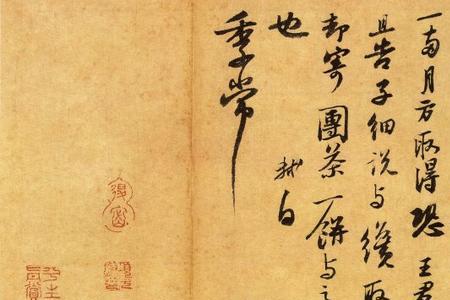 一兩月方取得恐王君
且告子細說与纔取
却寄團茶一餅与之
也
軾白
季常